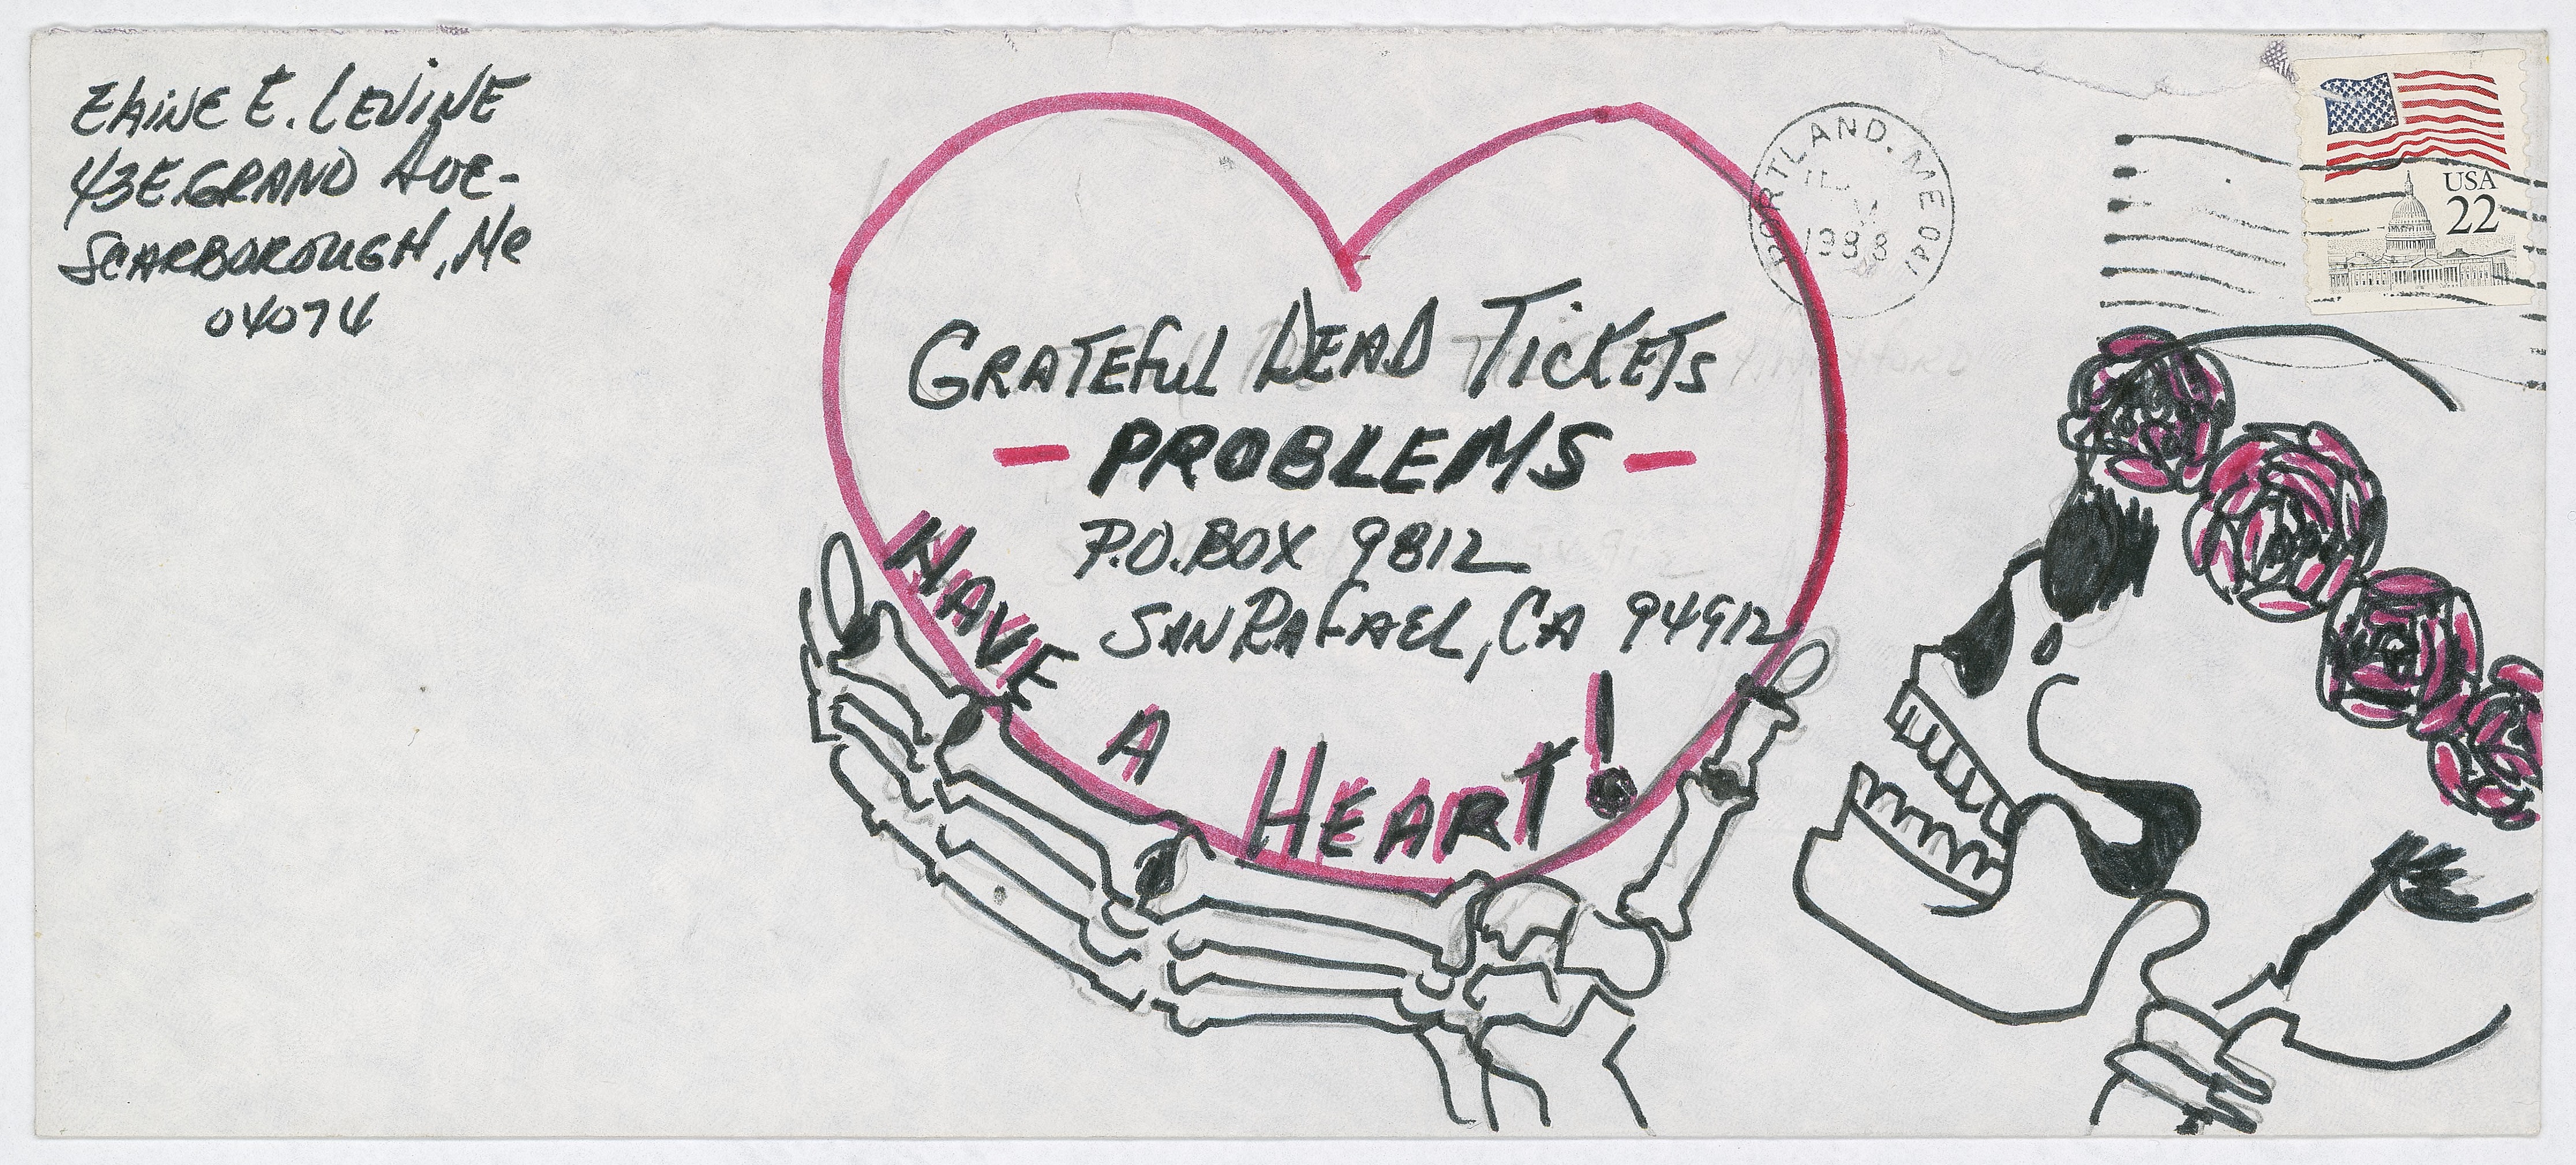 Elaine E. Levine
43 E. Grand Ave-
Scarborough, Me
04074
Grateful Dead Tickets
- PROBLEMS -
P.O. Box 9812
San Rafael, CA 94912
HAVE
A
HEART!
PORTLAND, ME 041
1988
USA
22